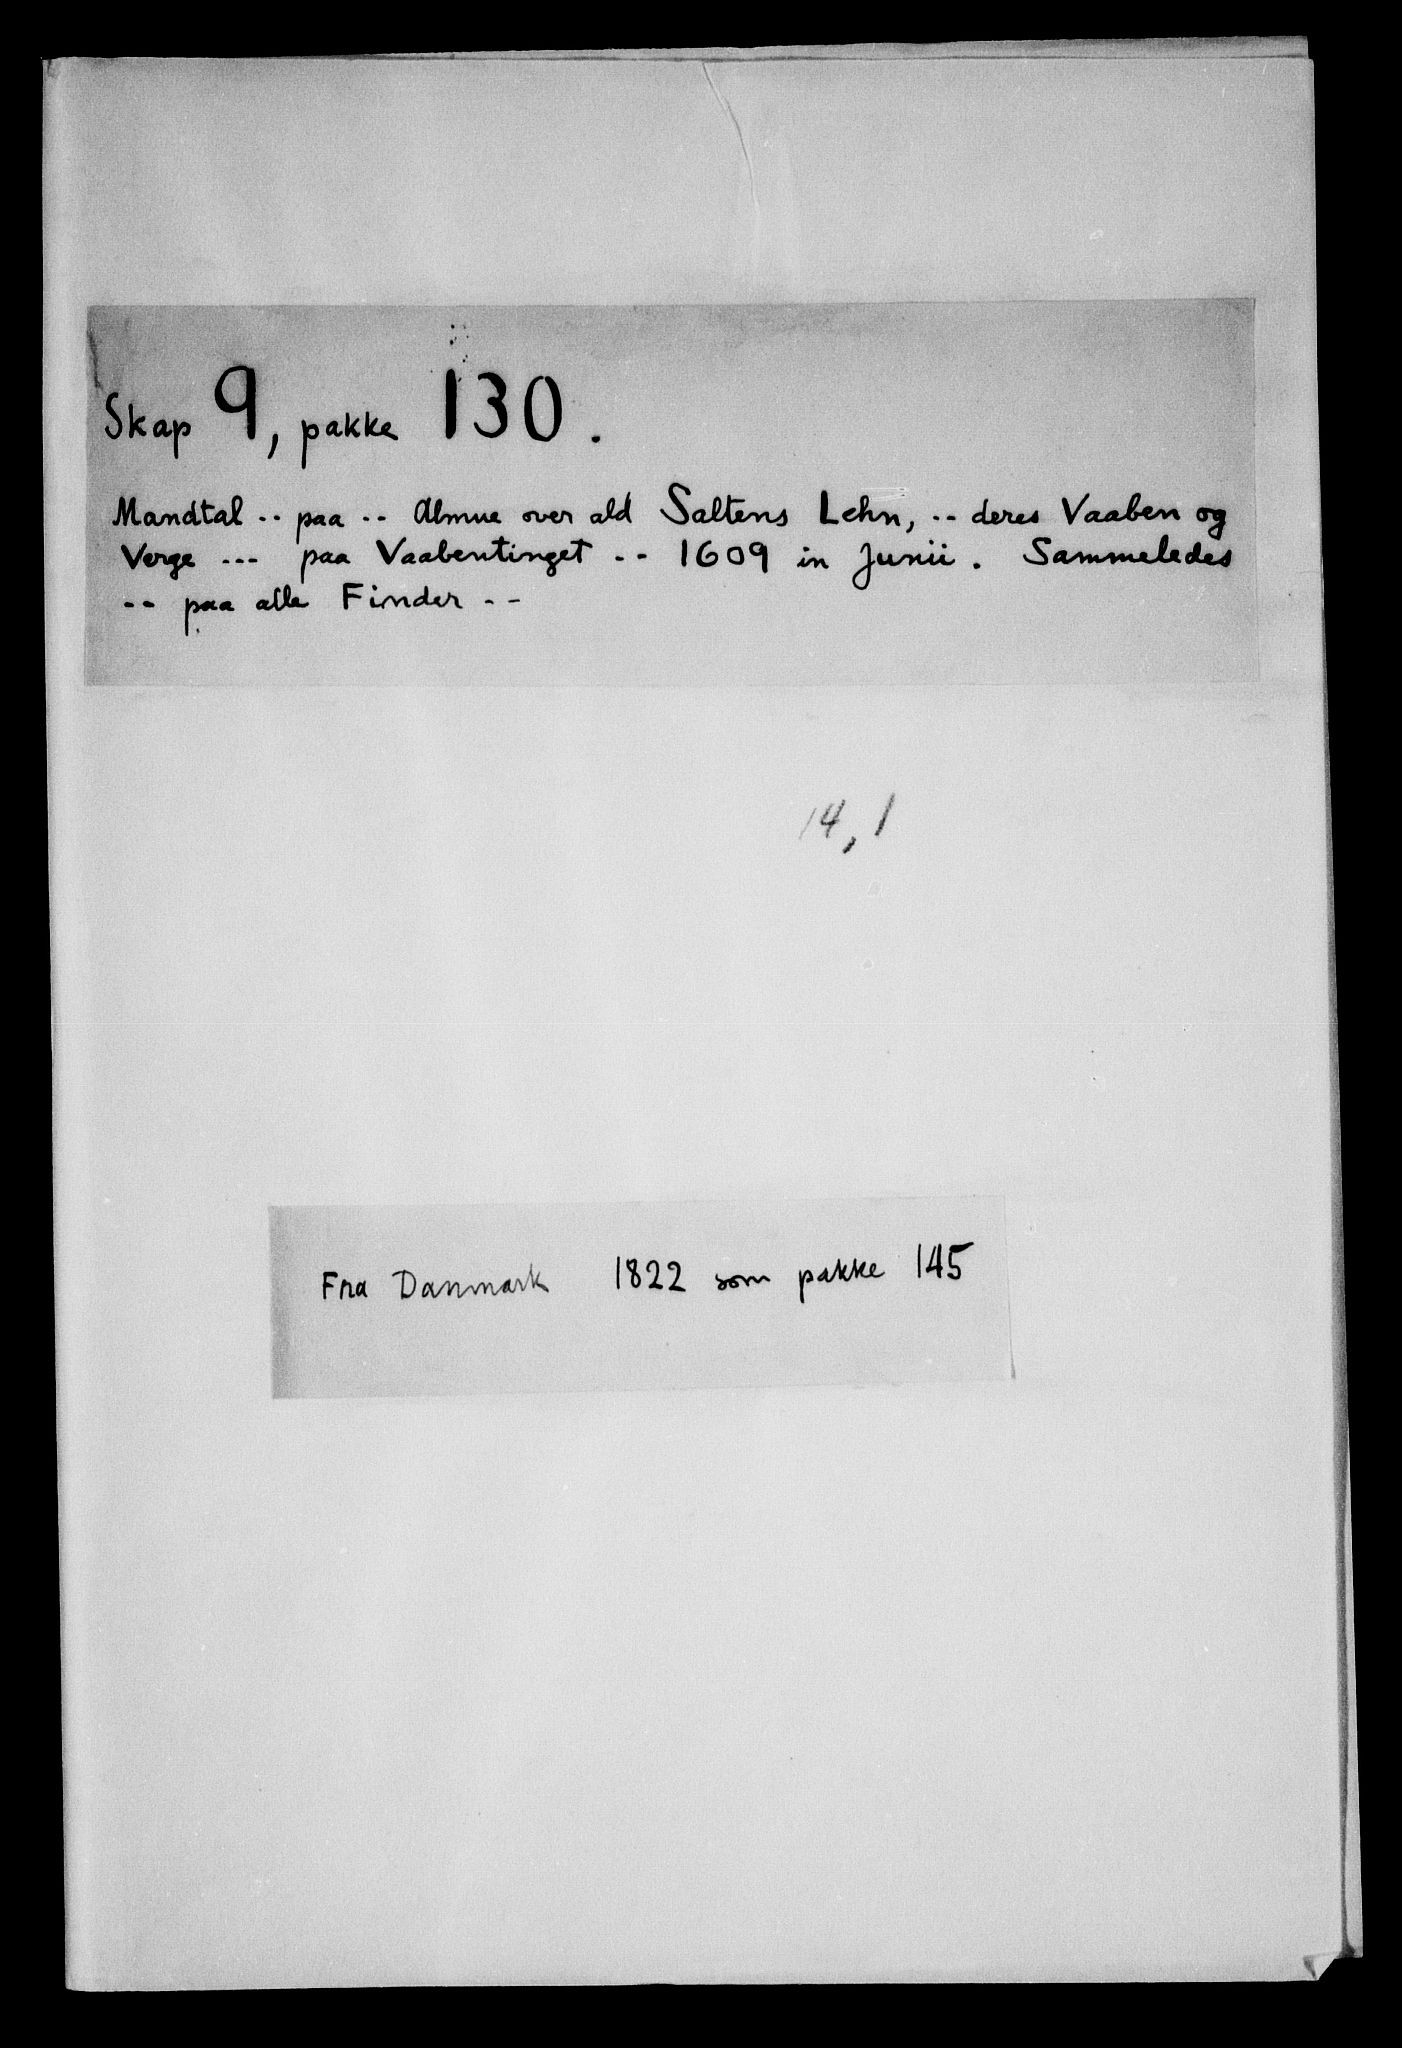 Skap 9, pakke 130.
Mandtal -- paa -- Almue over ald Saltens Lehn, -- deres Vaaben og
Verge --- paa Vaabentinget -- 1609 in Junii. Sammeledes
-- paa alle Finder --
14,1
Fra Danmark 1822 som pakke 145